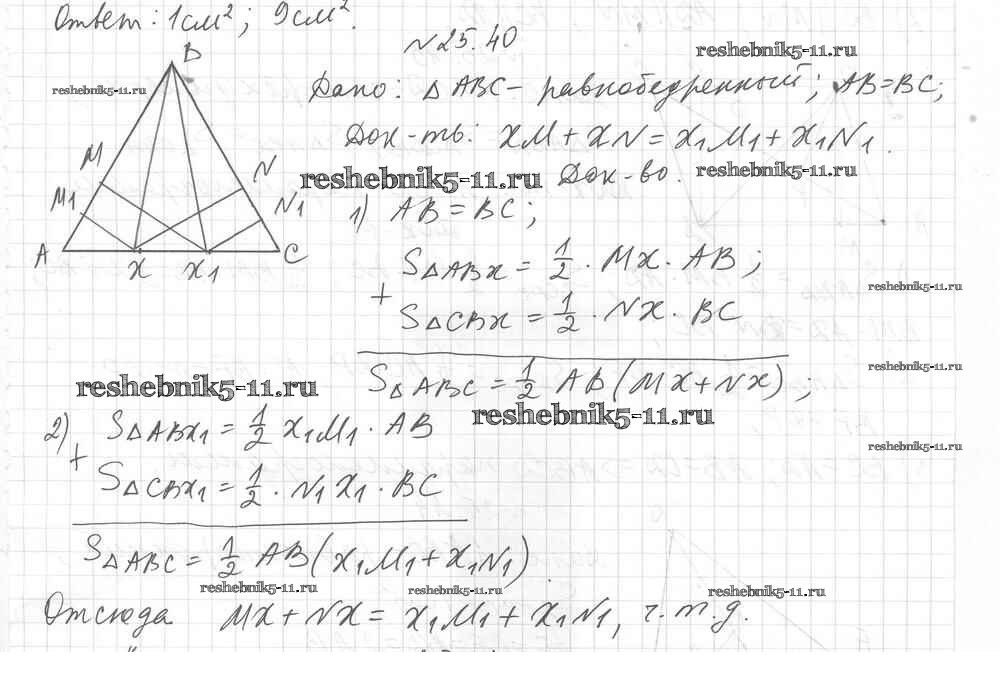 Ответ: 1 см²; 9 см².
№25.40
reshebnik5-11.ru
reshebnik5-11.ru
B
Дано: △ABC - равнобедренный; AB=BC;
Док-ть: XM + XN = X₁M₁ + X₁N₁.
M
N
M1
N1
A
X
X1
C
reshebnik5-11.ru
Док-во.
reshebnik5-11.ru
1) AB = BC;
S△ABX = 1/2 · MX · AB;
+
S△CBX = 1/2 · NX · BC
reshebnik5-11.ru
reshebnik5-11.ru
S△ABC = 1/2 AB(MX+NX);
reshebnik5-11.ru
reshebnik5-11.ru
2) S△ABX₁ = 1/2 X₁M₁ · AB
+
S△CBX₁ = 1/2 · N₁X₁ · BC
reshebnik5-11.ru
S△ABC = 1/2 AB(X₁M₁ + X₁N₁).
reshebnik5-11.ru
reshebnik5-11.ru
reshebnik5-11.ru
Отсюда MX + NX = X₁M₁ + X₁N₁, ч.т.д.